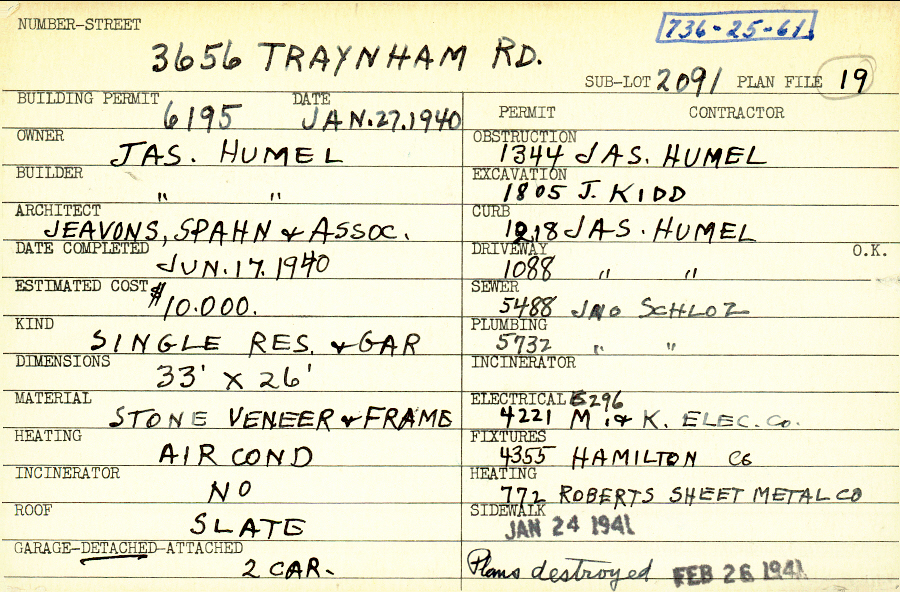 NUMBER-STREET
736-25-61
3656 TRAYNHAM RD.
SUB-LOT 2091 PLAN FILE 19
BUILDING PERMIT DATE
6195 JAN.27.1940
OWNER
JAS. HUMEL
BUILDER
" "
ARCHITECT
JEAVONS, SPAHN & ASSOC.
DATE COMPLETED
JUN.17.1940
ESTIMATED COST
$10.000.
KIND
SINGLE RES. & GAR
DIMENSIONS
33' X 26'
MATERIAL
STONE VENEER & FRAME
HEATING
AIR COND
INCINERATOR
NO
ROOF
SLATE
GARAGE-DETACHED-ATTACHED
2 CAR.
PERMIT CONTRACTOR
OBSTRUCTION
1344 JAS. HUMEL
EXCAVATION
1805 J. KIDD
CURB
1218 JAS. HUMEL
DRIVEWAY O.K.
1088 " "
SEWER
5488 JNO SCHLOZ
PLUMBING
5732 " "
INCINERATOR
ELECTRICAL 6296
4221 M. & K. ELEC. Co.
FIXTURES
4355 HAMILTON Co
HEATING
772 ROBERTS SHEET METAL CO
SIDEWALK
JAN 24 1941
Plans destroyed FEB 26 1941